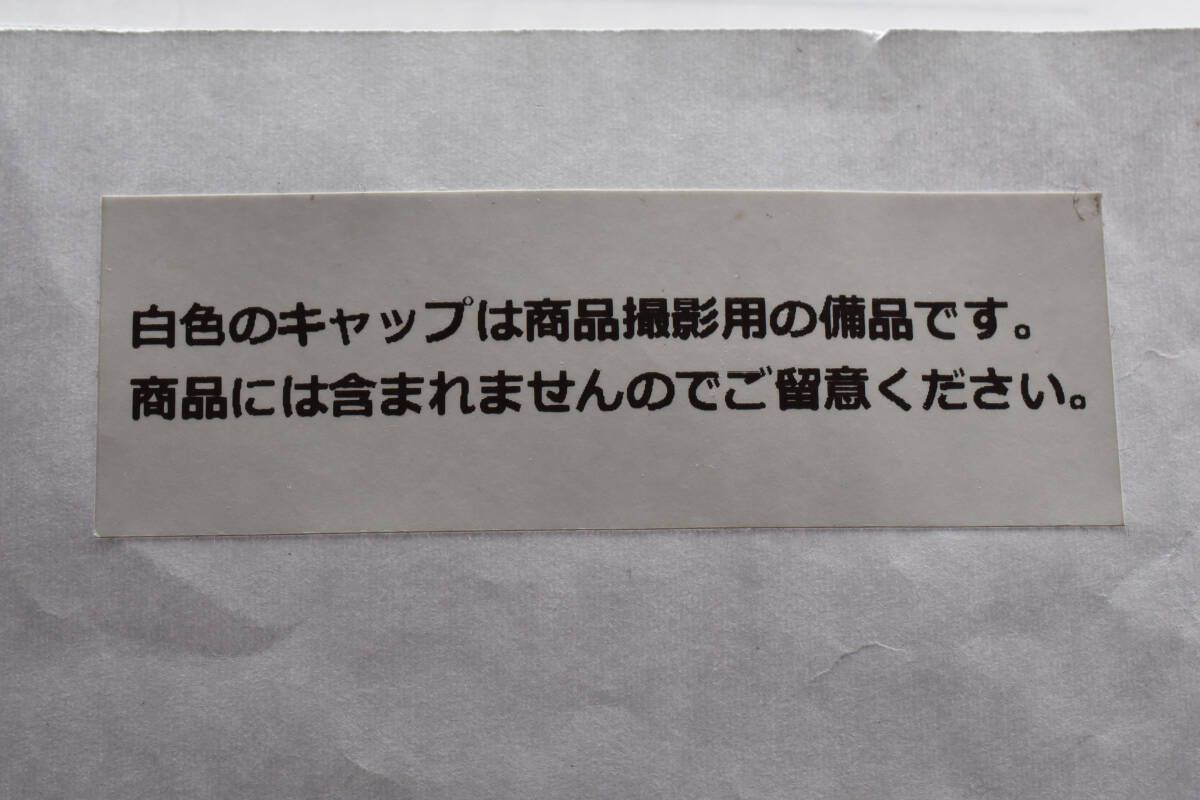 白色のキャップは商品撮影用の備品です。
商品には含まれませんのでご留意ください。